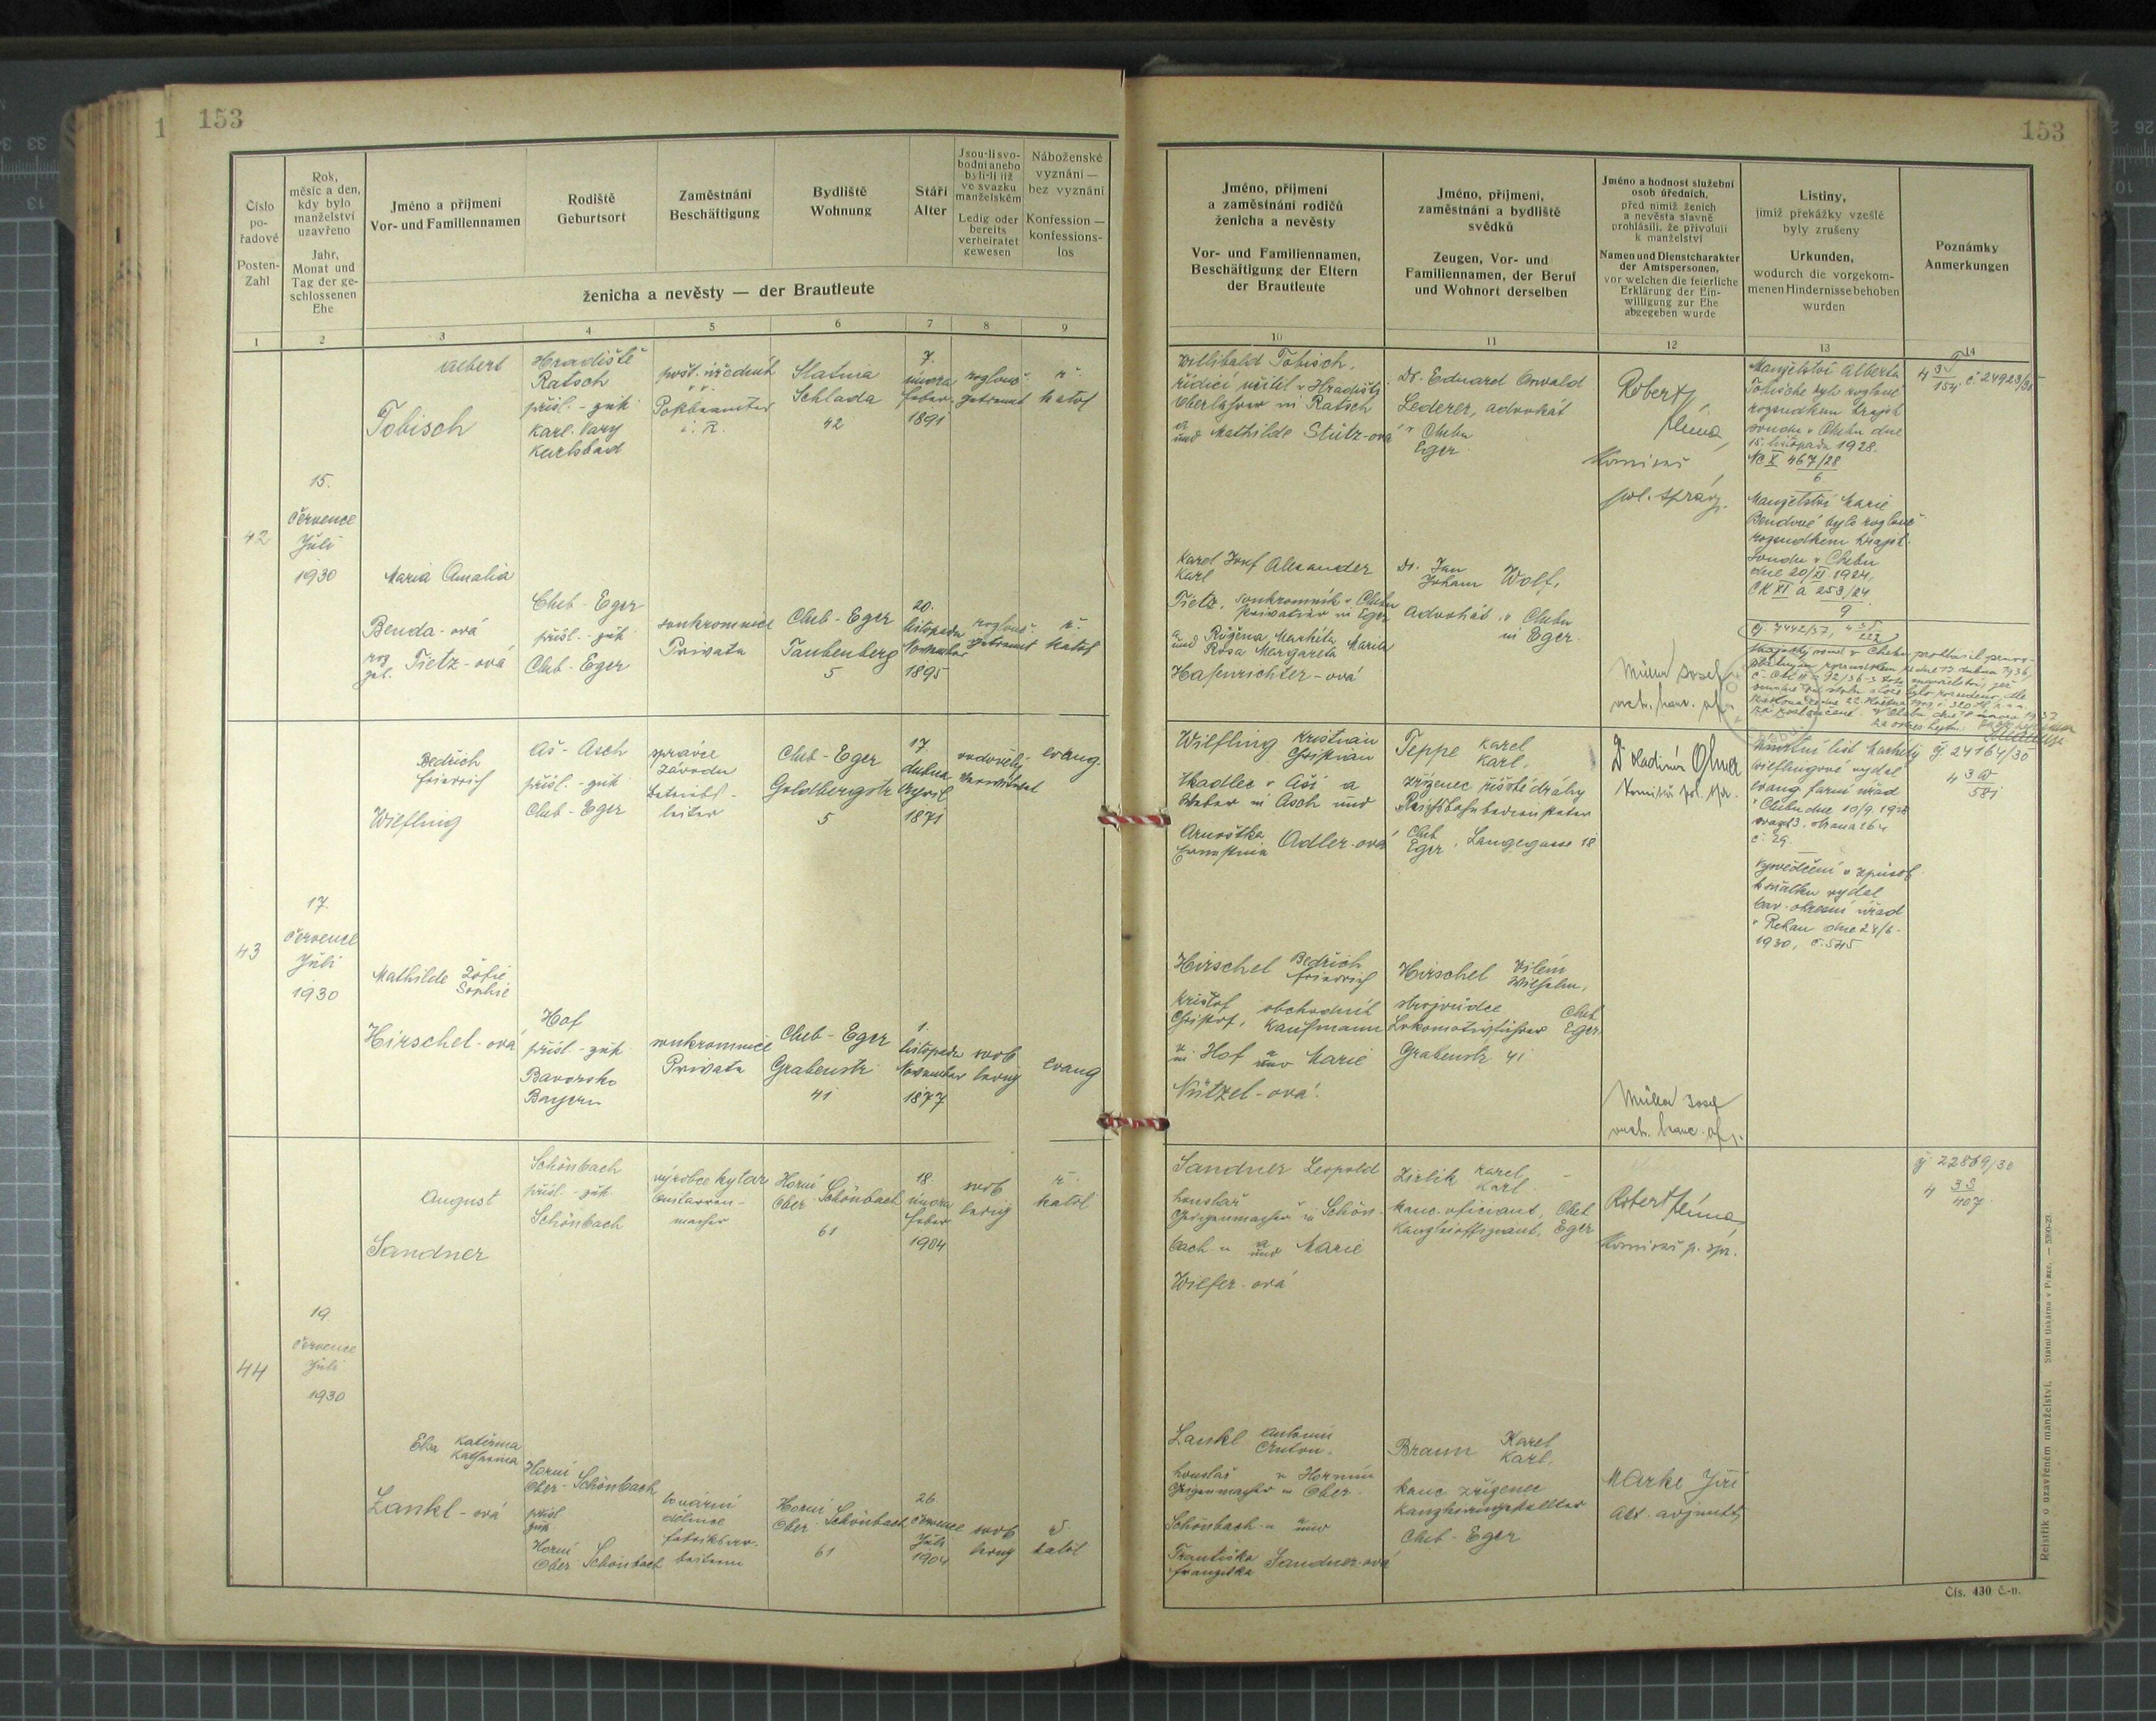 153
153
Číslo
po-
řadové
Posten-
Zahl
Rok,
měsíc a den,
kdy bylo
manželství
uzavřeno
Jahr,
Monat und
Tag der ge-
schlossenen
Ehe
Jméno a příjmení
Vor- und Familiennamen
Rodiště
Geburtsort
Zaměstnání
Beschäftigung
Bydliště
Wohnung
Stáří
Alter
Jsou-li svo-
bodni anebo
byli-li již
ve svazku
manželském
Ledig oder
bereits
verheiratet
gewesen
Náboženské
vyznání —
bez vyznání
Konfession —
konfessions-
los
ženicha a nevěsty — der Brautleute
Jméno, příjmení
a zaměstnání rodičů
ženicha a nevěsty
Vor- und Familiennamen,
Beschäftigung der Eltern
der Brautleute
Jméno, příjmení,
zaměstnání a bydliště
svědků
Zeugen, Vor- und
Familiennamen, der Beruf
und Wohnort derselben
Jméno a hodnost služební
osob úředních,
před nimiž ženich
a nevěsta slavně
prohlásili, že přivolují
k manželství
Namen und Dienstcharakter
der Amtspersonen,
vor welchen die feierliche
Erklärung der Ein-
willigung zur Ehe
abgegeben wurde
Listiny,
jimiž překážky vzešlé
byly zrušeny
Urkunden,
wodurch die vorgekom-
menen Hindernisse behoben
wurden
Poznámky
Anmerkungen
1 2 3 4 5 6 7 8 9 10 11 12 13 14
42
15.
července
Juli
1930
Albert
Tobisch
Hradiště
Ratsch
přísl. - zust.
Karl. Vary
Karlsbad
pošt. úředník
v. v.
Postbeamter
i. R.
Slatina
Schlada
42
7.
února
Feber
1891
rozlouč.
getrennt
ř.
katol
Willibald Tobisch,
řídící učitel v Hradišti
Oberlehrer in Ratsch
a
und Mathilde Stütz-ová
Dr. Eduard Oswald
Lederer, advokát
v Chebu
Eger
Robert
komisař
pol. správy.
Manželství Alberta
Tobische bylo rozlouč.
rozsudkem krajsk.
soudu v Chebu dne
15. listopadu 1928.
Nc X 467/28
6
4 3T/154 č. 24923/30
Maria Amalia
Benda-ová
roz.
geb. Tietz-ová
Cheb - Eger
přísl. - zust.
Cheb - Eger
soukromnice
Private
Cheb - Eger
Taubenberg
5
20.
listopadu
November
1895
rozlouč.
getrennt
ř.
katol
Karel Josef Alexander
Karl
Tietz, soukromník v Chebu
Privatier in Eger
a Růžena Markéta Marie
und Rosa Margareta
Hasenrichter-ová
Dr. Jan
Johann Wolf,
advokát v Chebu
in Eger.
Müller Josef
vrch. kanc. of.
Manželství Marie
Bendové bylo rozlouč.
rozsudkem krajsk.
soudu v Chebu
dne 20/XI. 1924,
Ck XI a 253/24
9
čj 7442/37,
43
17.
července
Juli
1930
Bedřich
Friedrich
Wilfling
Aš - Asch
přísl. - zust.
Cheb - Eger
správce
závodu
Betriebs-
leiter
Cheb - Eger
Goldbergstr
5
17.
dubna
April
1871
ovdovělý
verwitwet
evang.
Wilfling Kristian
Christian
tkadlec v Aši a
Weber in Asch und
Arnoštka
Ernestina Adler-ová
Teppe Karel
Karl,
zřízenec říšské dráhy
Reichsbahnbediensteter
Cheb
Eger, Langegasse 18
Dr Vladimír
komisař pol. spr.
Úmrtní list Markéty
Wilflingové vydal
evang. farní úřad
v Chebu dne 10/9. 1928
svazek 3. strana 264
č. 29.
čj 24164/30
4 3W/581
Vysvědčení o způsob.
k sňatku vydal
bav. okresní úřad
v Rehau dne 24/6.
1930, č. 545
Mathilde Žofie
Sophie
Hirschel-ová
Hof
přísl. - zust.
Bavorsko
Bayern
soukromnice
Private
Cheb - Eger
Grabenstr
41
1.
listopadu
November
1877
svob
ledig
evang
Hirschel Bedřich
Friedrich
Krištof, obchodník
Christof, Kaufmann
v
in Hof a
und Marie
Nützel-ová.
Hirschel Vilém
Wilhelm,
strojvůdce Cheb
Lokomotivführer Eger
Grabenstr. 41
Müller Josef
vrch. kanc. of.
44
19.
července
Juli
1930
August
Sandner
Schönbach
přísl. - zust.
Schönbach
výrobce kytar
Guitarren-
macher
Horní
Ober Schönbach
61
18.
února
Feber
1904
svob
ledig
ř.
katol
Sandner Leopold
houslař
Geigenmacher v Schön-
bach u a
und Marie
Wilfer-ová
Zirlik Karel
Karl
kanc. oficiant, Cheb
Kanzleioffiziant, Eger
Robert
komisař p. spr.
čj 22869/30
4 3S/407
Elsa Kateřina
Katharina
Lankl-ová
Horní
Ober-Schönbach
přísl
zust
Horní
Ober Schönbach
tovární
dělnice
Fabriksar-
beiterin
Horní
Ober Schönbach
61
26.
července
Juli
1904
svob
ledig
ř.
katol
Lankl Antonín
Anton,
houslař v Horním
Geigenmacher in Ober-
Schönbach u a
und
Františka
Franziska Sandner-ová
Braun Karel
Karl,
kanc. zřízenec
Kanzleiangestellter
Cheb - Eger
Marke Jiří
akt. adjunkt
Rejstřík o uzavřeném manželství. Státní tiskárna v Praze. — 5390-23.
Čís. 430 č.-n.